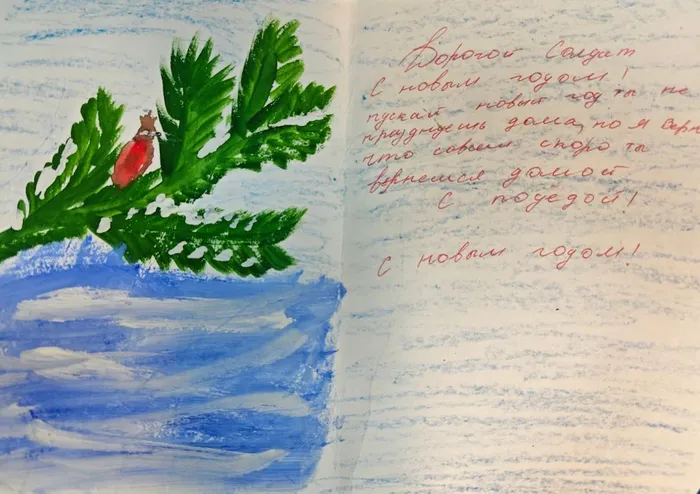 Дорогой Солдат
С новым годом!
пускай новый год ты не
празднуешь дома, но я верю
что совсем скоро ты
вернешся домой
С победой!
С новым годом!